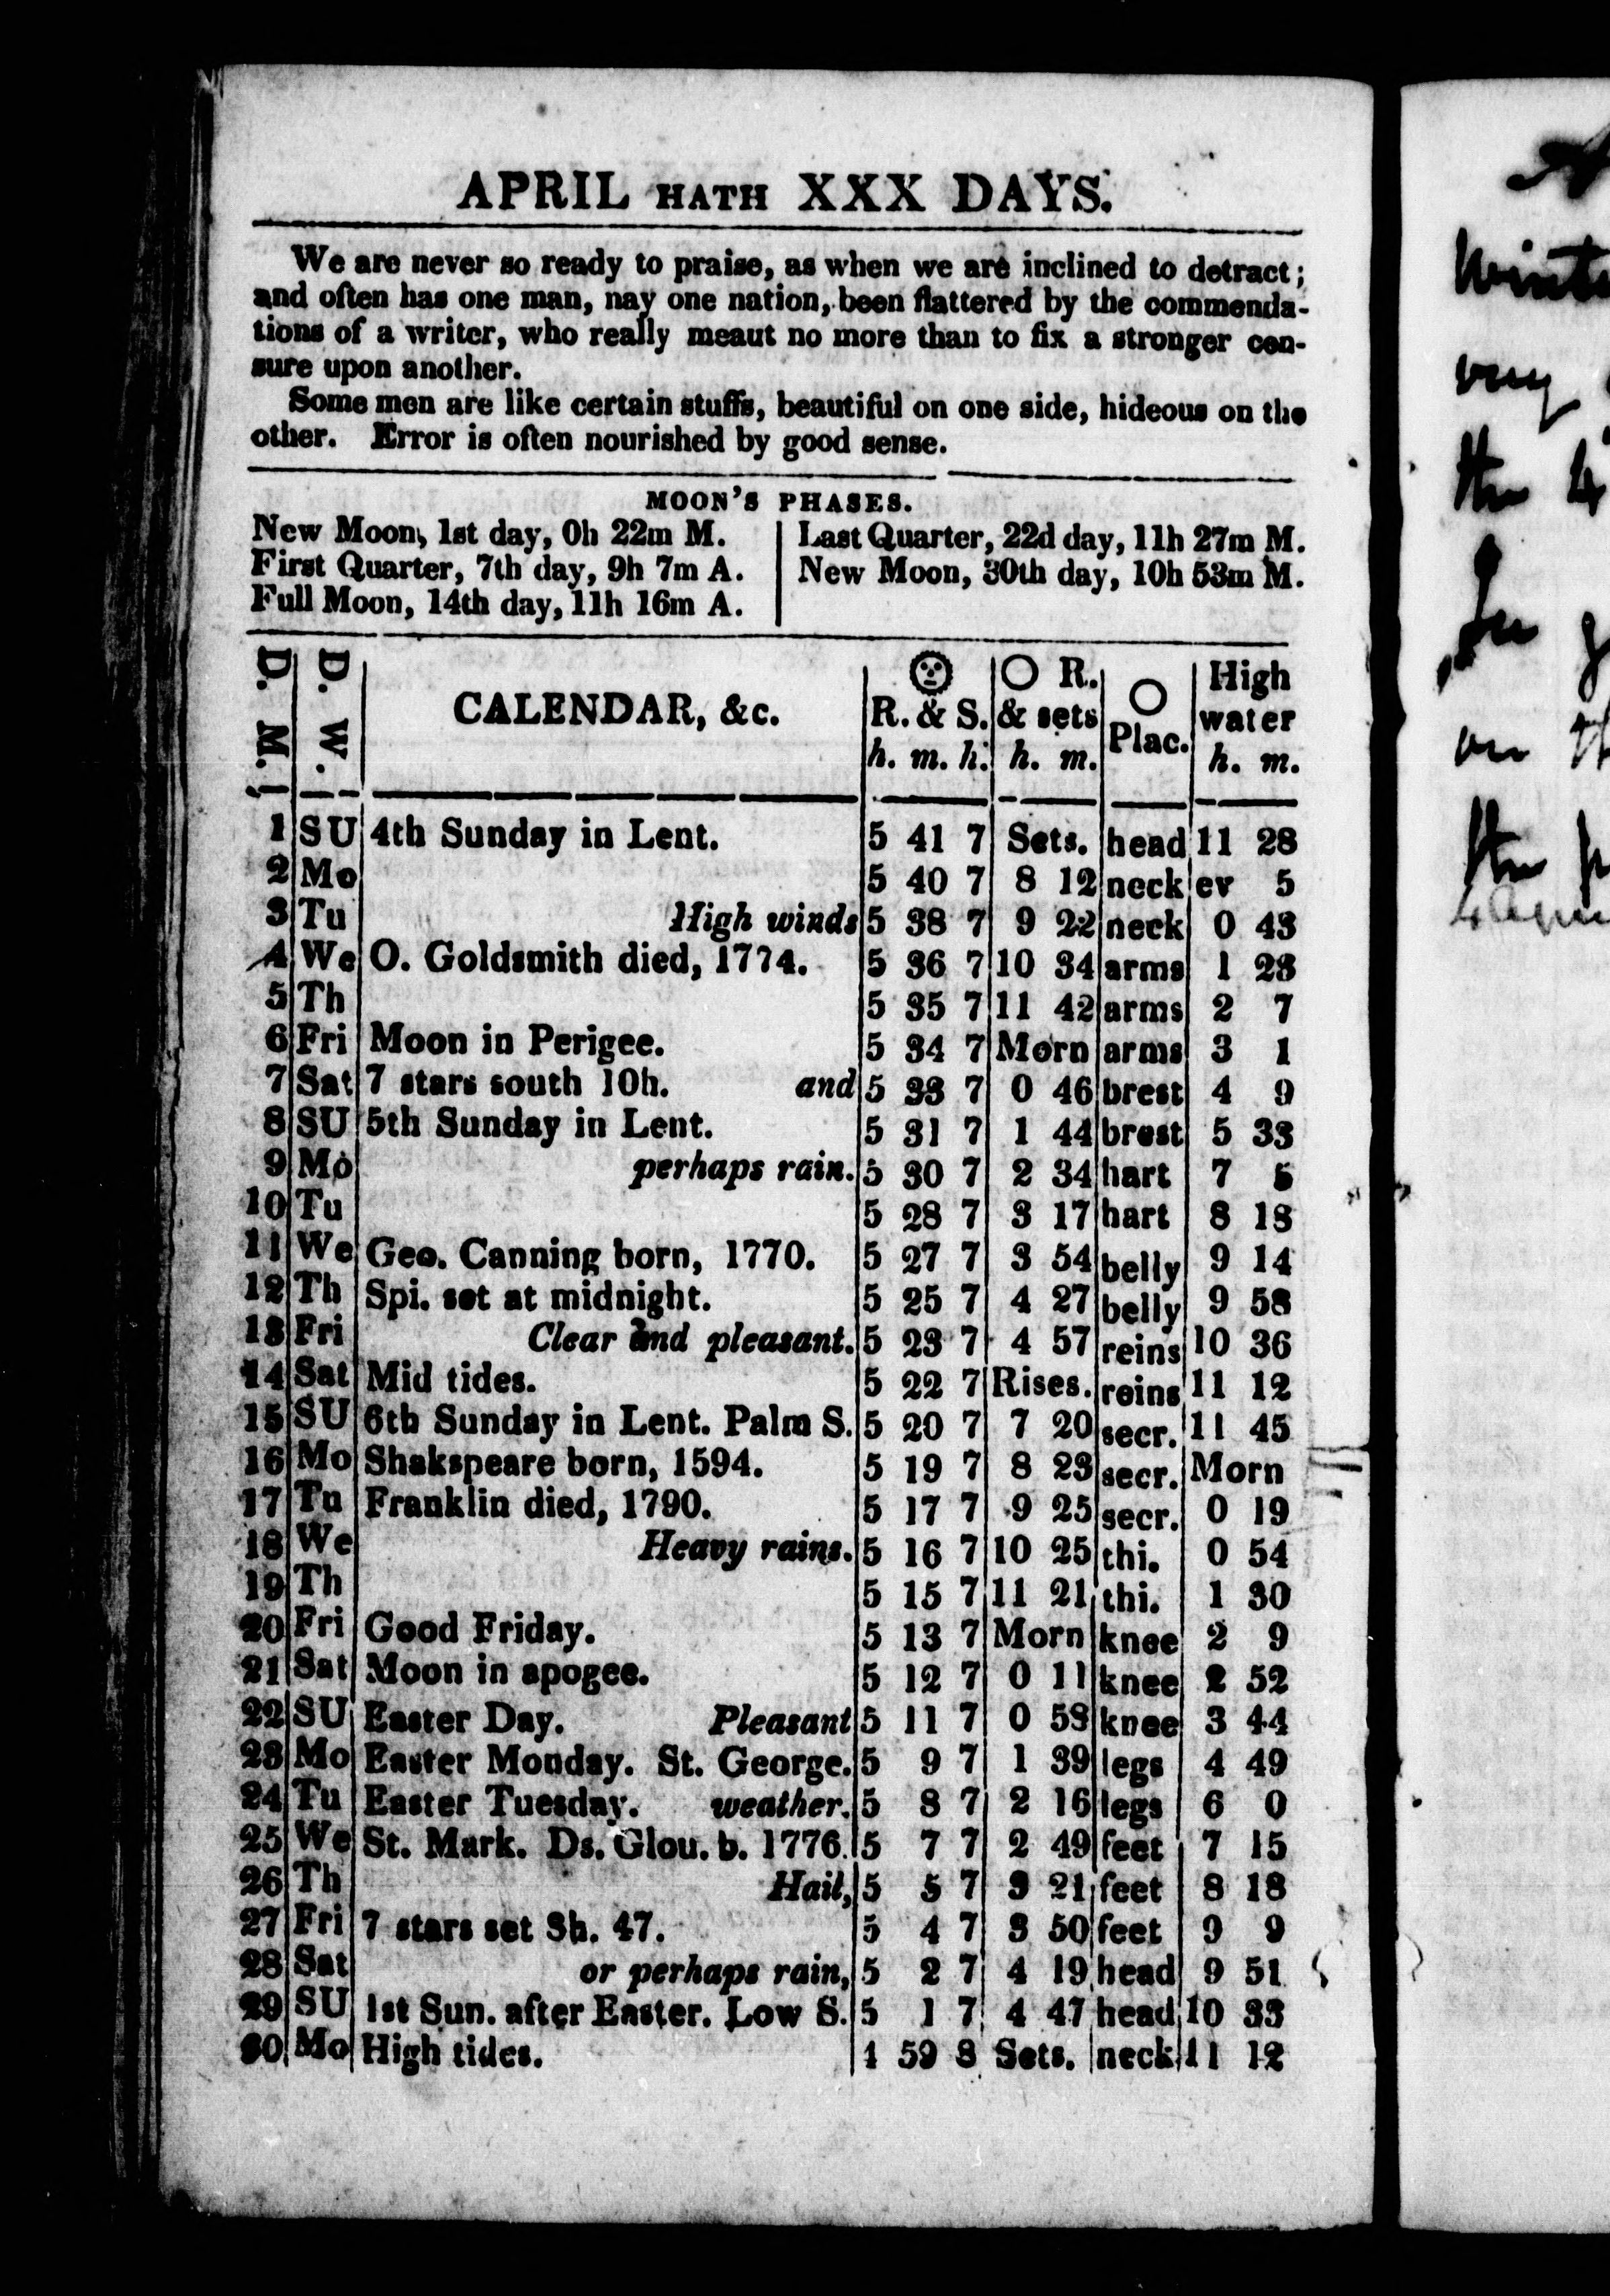 APRIL HATH XXX DAYS.
We are never so ready to praise, as when we are inclined to detract;
and often has one man, nay one nation, been flattered by the commenda-
tions of a writer, who really meaut no more than to fix a stronger cen-
sure upon another.
Some men are like certain stuffs, beautiful on one side, hideous on the
other. Error is often nourished by good sense.
MOON'S PHASES.
New Moon, 1st day, 0h 22m M.
First Quarter, 7th day, 9h 7m A.
Full Moon, 14th day, 11h 16m A.
Last Quarter, 22d day, 11h 27m M.
New Moon, 30th day, 10h 53m M.
D. M. D. W. CALENDAR, &c. R. & S. h. m. h. R. & sets h. m. Plac. High water h. m.
1 SU 4th Sunday in Lent. 5 41 7 Sets. head 11 28
2 Mo 5 40 7 8 12 neck ev 5
3 Tu High winds 5 38 7 9 22 neck 0 43
4 We O. Goldsmith died, 1774. 5 36 7 10 34 arms 1 23
5 Th 5 35 7 11 42 arms 2 7
6 Fri Moon in Perigee. 5 34 7 Morn arms 3 1
7 Sat 7 stars south 10h. and 5 33 7 0 46 brest 4 9
8 SU 5th Sunday in Lent. 5 31 7 1 44 brest 5 33
9 Mo perhaps rain. 5 30 7 2 34 hart 7 5
10 Tu 5 28 7 3 17 hart 8 18
11 We Geo. Canning born, 1770. 5 27 7 3 54 belly 9 14
12 Th Spi. set at midnight. 5 25 7 4 27 belly 9 58
13 Fri Clear and pleasant. 5 23 7 4 57 reins 10 36
14 Sat Mid tides. 5 22 7 Rises. reins 11 12
15 SU 6th Sunday in Lent. Palm S. 5 20 7 7 20 secr. 11 45
16 Mo Shakspeare born, 1594. 5 19 7 8 23 secr. Morn
17 Tu Franklin died, 1790. 5 17 7 9 25 secr. 0 19
18 We Heavy rains. 5 16 7 10 25 thi. 0 54
19 Th 5 15 7 11 21 thi. 1 30
20 Fri Good Friday. 5 13 7 Morn knee 2 9
21 Sat Moon in apogee. 5 12 7 0 11 knee 2 52
22 SU Easter Day. Pleasant 5 11 7 0 58 knee 3 44
23 Mo Easter Monday. St. George. 5 9 7 1 39 legs 4 49
24 Tu Easter Tuesday. weather. 5 8 7 2 16 legs 6 0
25 We St. Mark. Ds. Glou. b. 1776. 5 7 7 2 49 feet 7 15
26 Th Hail, 5 5 7 3 21 feet 8 18
27 Fri 7 stars set 8h. 47. 5 4 7 3 50 feet 9 9
28 Sat or perhaps rain, 5 2 7 4 19 head 9 51
29 SU 1st Sun. after Easter. Low S. 5 1 7 4 47 head 10 33
30 Mo High tides. 4 59 8 Sets. neck 11 12
very
the 4
on
the